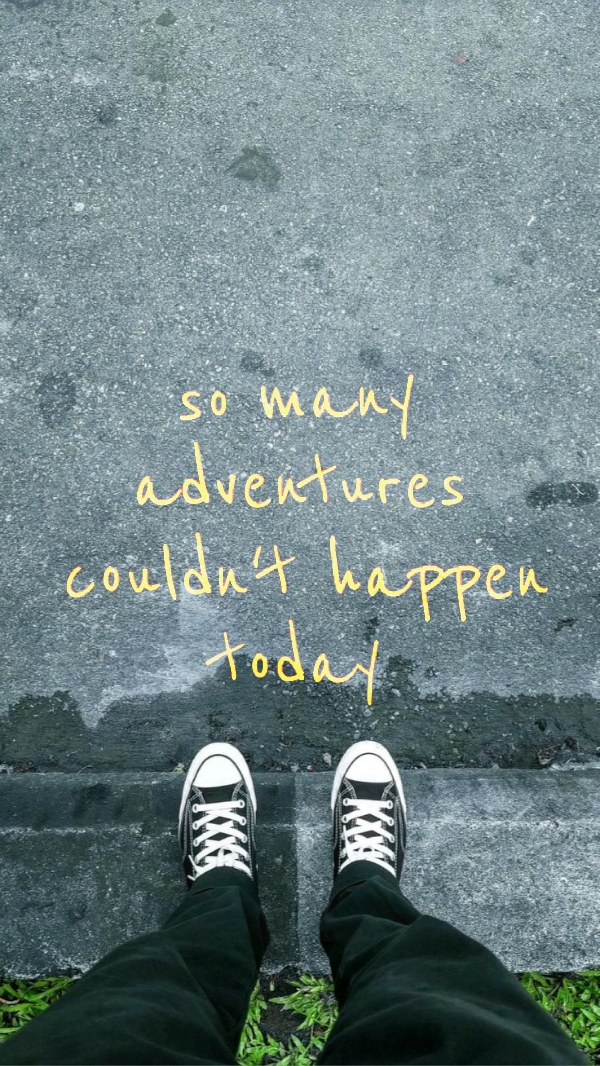 so many
adventures
couldn't happen
today